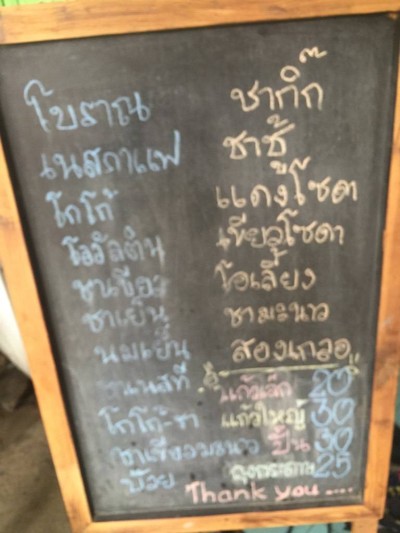 โบราณ
เนสกาแฟ
โกโก้
โอวัลติน
ชาเขียว
ชาเย็น
นมเย็น
โกโก้-ชา
ชาเขียวมะนาว
บ๊วย
ชากิ๊ก
ชาชู้
แดงโซดา
เขียวโซดา
โอเลี้ยง
ชามะนาว
สองเกลอ
แก้วเล็ก 20
แก้วใหญ่ 30
ปั่น 30
ถุงกระดาษ 25
Thank you ....